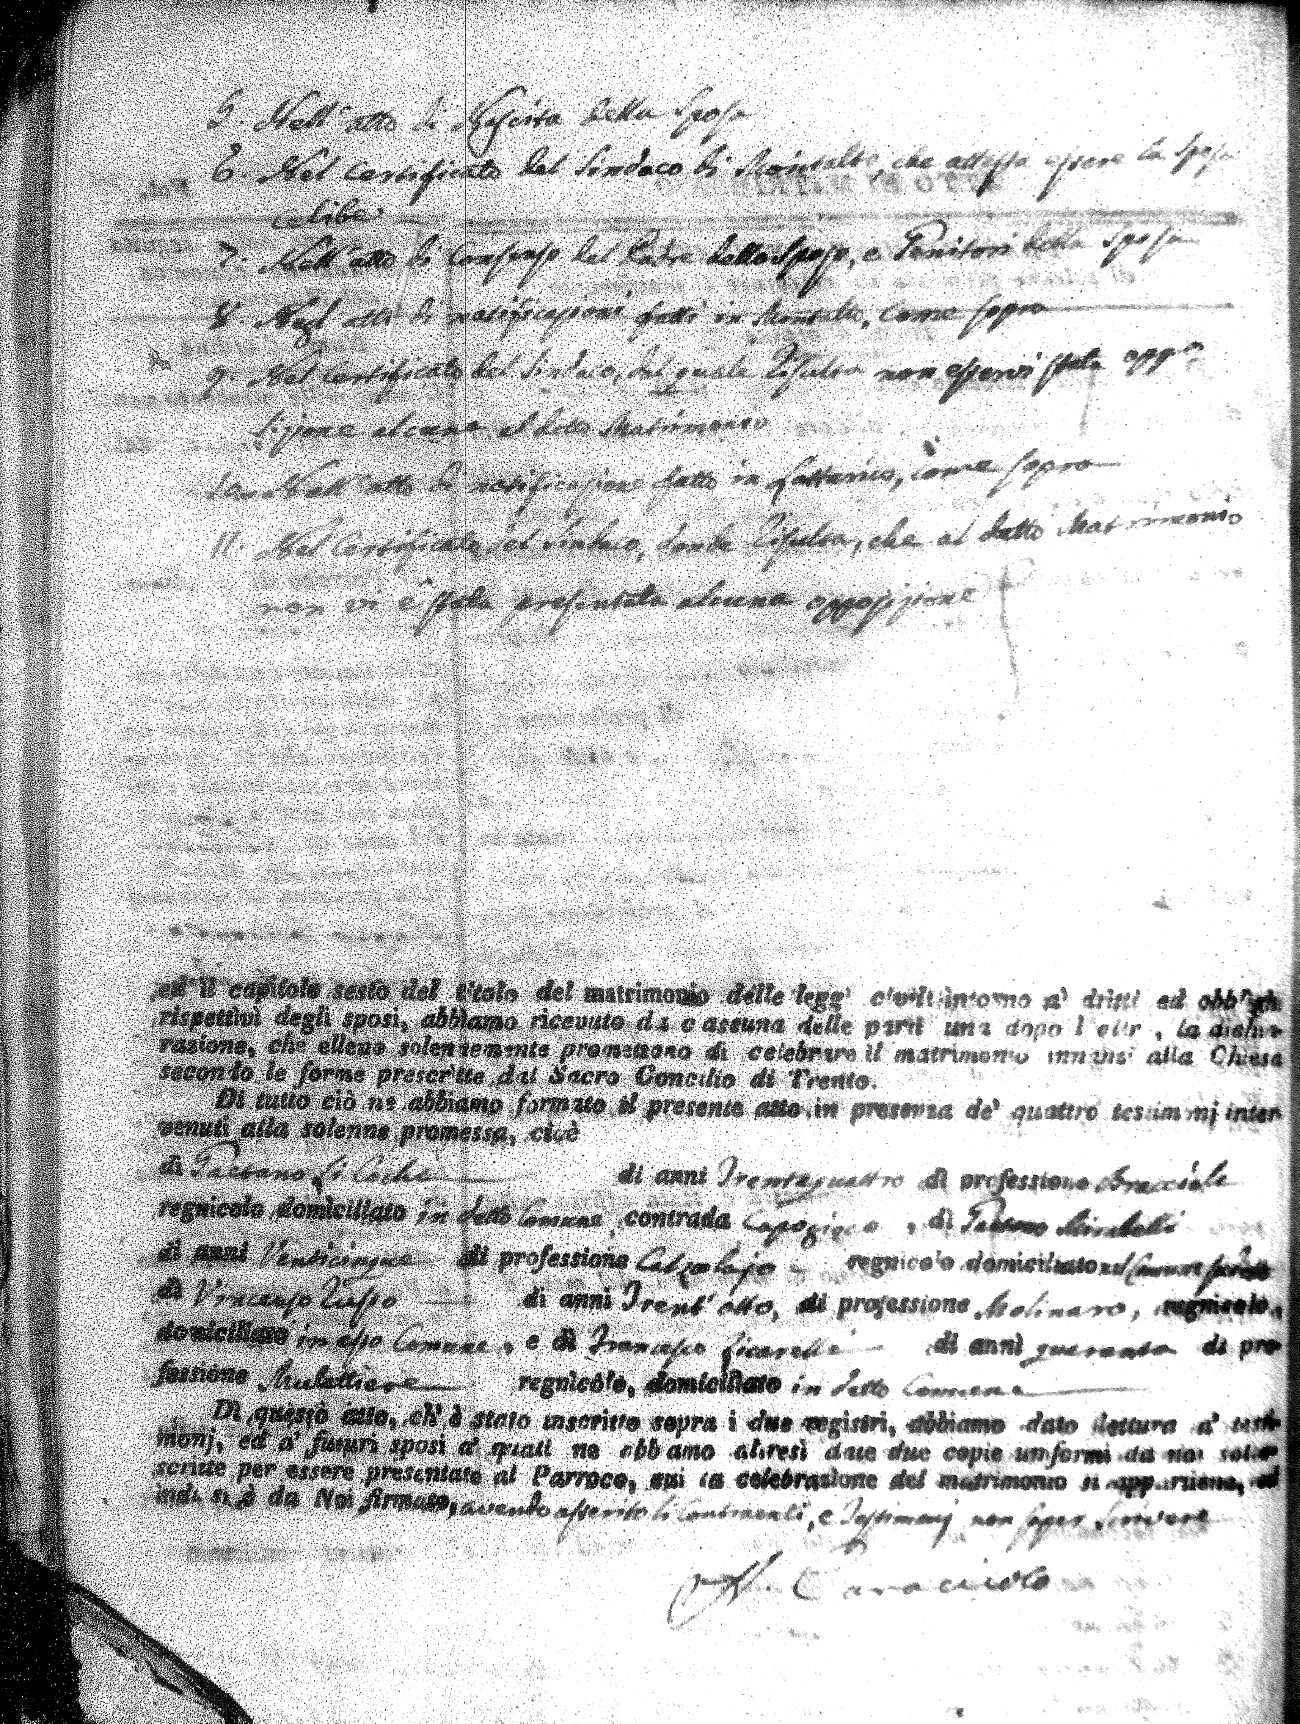 5. Nell'atto di Nascita della Sposa
6. Nel Certificato del Sindaco di Montalto, che attesta essere la Sposa
celibe
7. Nell'atto di Consenso del Padre dello Sposo, e Genitori della Sposa
8. Negl' atti di notificazioni fatti in Montalto, come sopra
9. Nel Certificato del Sindaco, dal quale risulta non esservi stata oppo
sizione alcuna al detto Matrimonio
10. Nell'atto di notificazione fatto in Lattarico, come sopra
11. Nel Certificato del Sindaco, donde risulta, che al detto Matrimonio
non vi è stata presentata alcuna opposizione
ed il capitolo sesto del titolo del matrimonio delle leggi civili intorno a' dritti ed obblighi
rispettivi degli sposi, abbiamo ricevuto da ciascuna delle parti una dopo l'altr , la dichia-
razione, che elleno solennemente promettono di celebrare il matrimonio innanzi alla Chiesa
secondo le forme prescritte dal Sacro Concilio di Trento.
Di tutto ciò ne abbiamo formato il presente atto in presenza de' quattro testimonj inter-
venuti alla solenne promessa, cioè
di Gaetano di di anni Trentaquattro di professione Bracciale
regnicolo domiciliato in detto Comune contrada , di Gaetano Mirabelli
di anni Venticinque di professione Calzolajo regnicolo domiciliato
di Vincenzo Russo di anni Trent'otto, di professione Molinaro, regnicolo,
domiciliato in esso Comune, e di Francesco Ficarelli di anni quaranta di pro-
fessione Mulattiere regnicolo, domiciliato in detto Comune
Di questo atto, ch'è stato inscritto sopra i due registri, abbiamo dato lettura a' testi-
monj, ed a' futuri sposi a' quali ne abbiamo altresì date due copie uniformi da noi sotto-
scritte per essere presentate al Parroco, cui la celebrazione del matrimonio si appartiene, ed
indi si è da Noi firmato, avendo asserito li Contraenti, e Testimonj non saper scrivere
Caracciolo